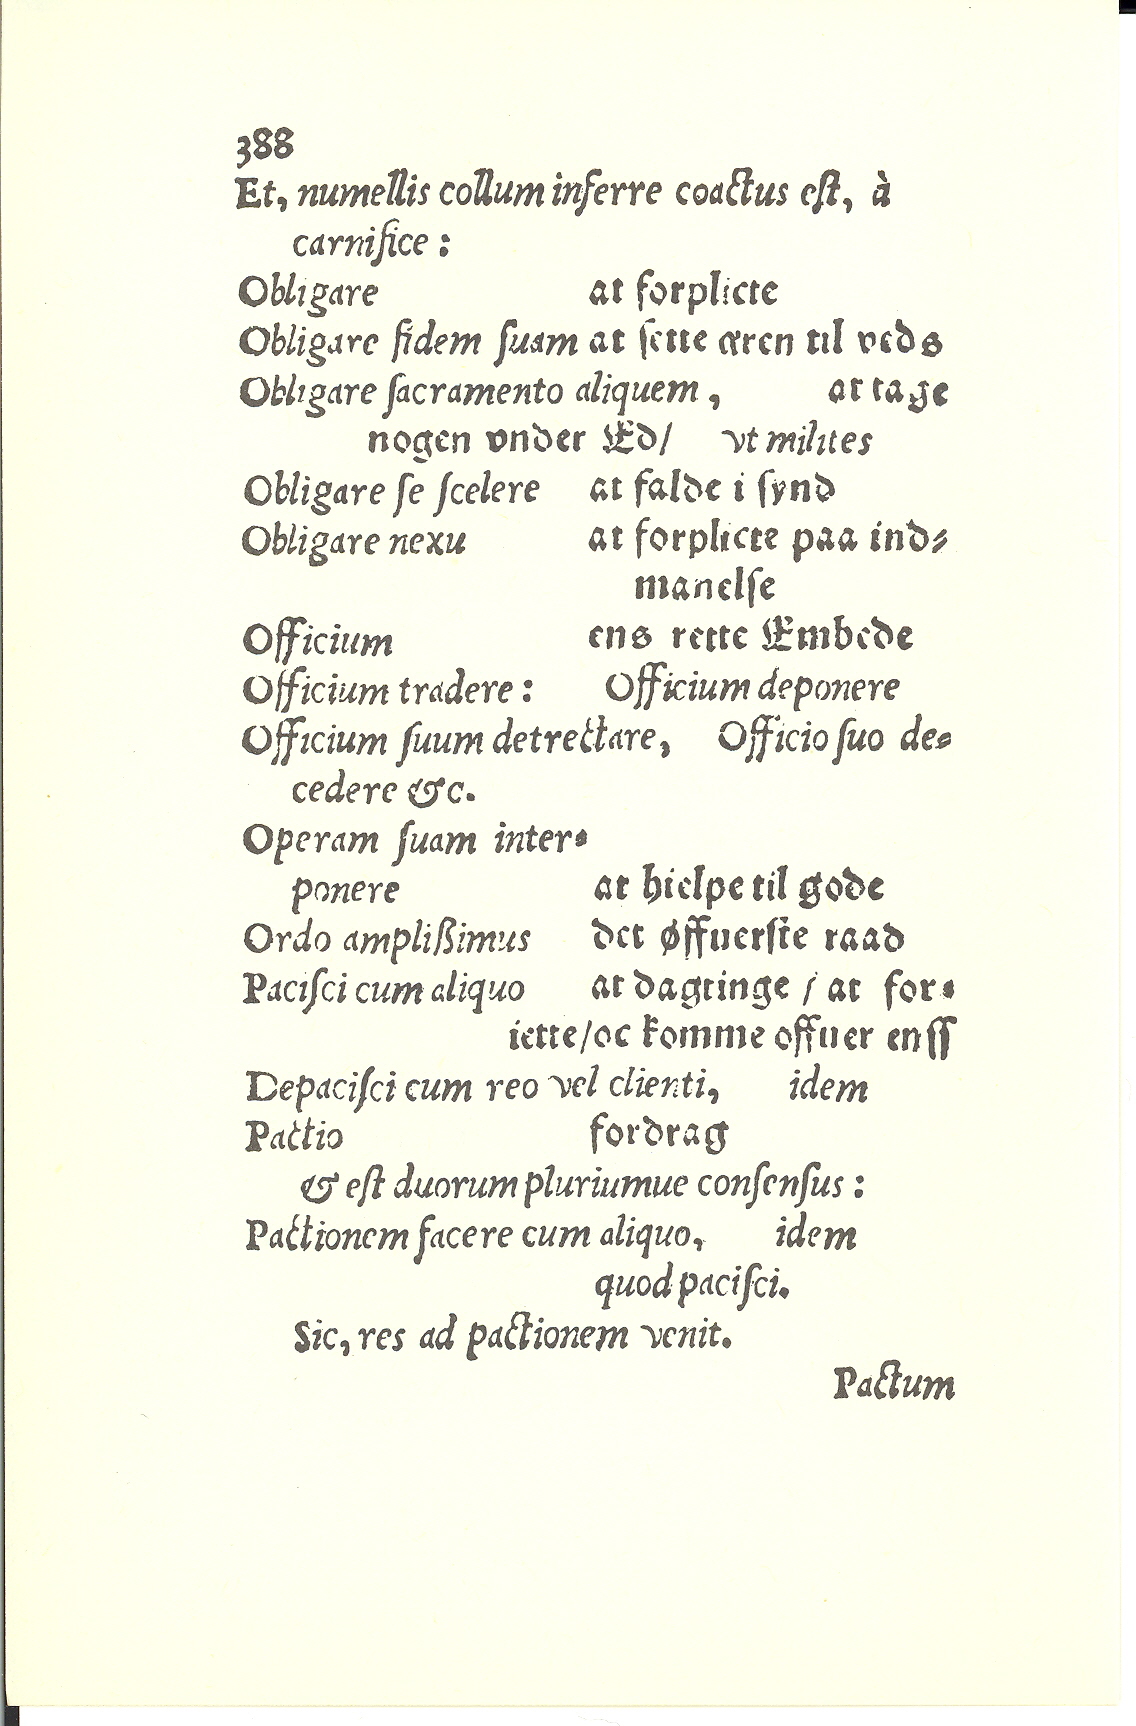 388
Et, numellis collum inſerre coactus eſt, à
carnifice :
Obligare at forplicte
Obligare fidem ſuam at ſette æren til veds
Obligare ſacramento aliquem , at tage
nogen vnder Ed/ vt milites
Obligare ſe ſcelere at falde i ſynd
Obligare nexu at forplicte paa ind⸗
manelſe
Officium ens rette Embede
Officium tradere : Officium deponere
Officium ſuum detrectare, Officio ſuo de⸗
cedere &c.
Operam ſuam inter⸗
ponere at hielpe til gode
Ordo amplißimus det øffuerſte raad
Paciſci cum aliquo at dagtinge / at for⸗
iette/oc komme offuer enſſ
Depaciſci cum reo vel clienti, idem
Pactio fordrag
& eſt duorum pluriumue conſenſus :
Pactionem facere cum aliquo, idem
quod paciſci.
Sic, res ad pactionem venit.
Pactum